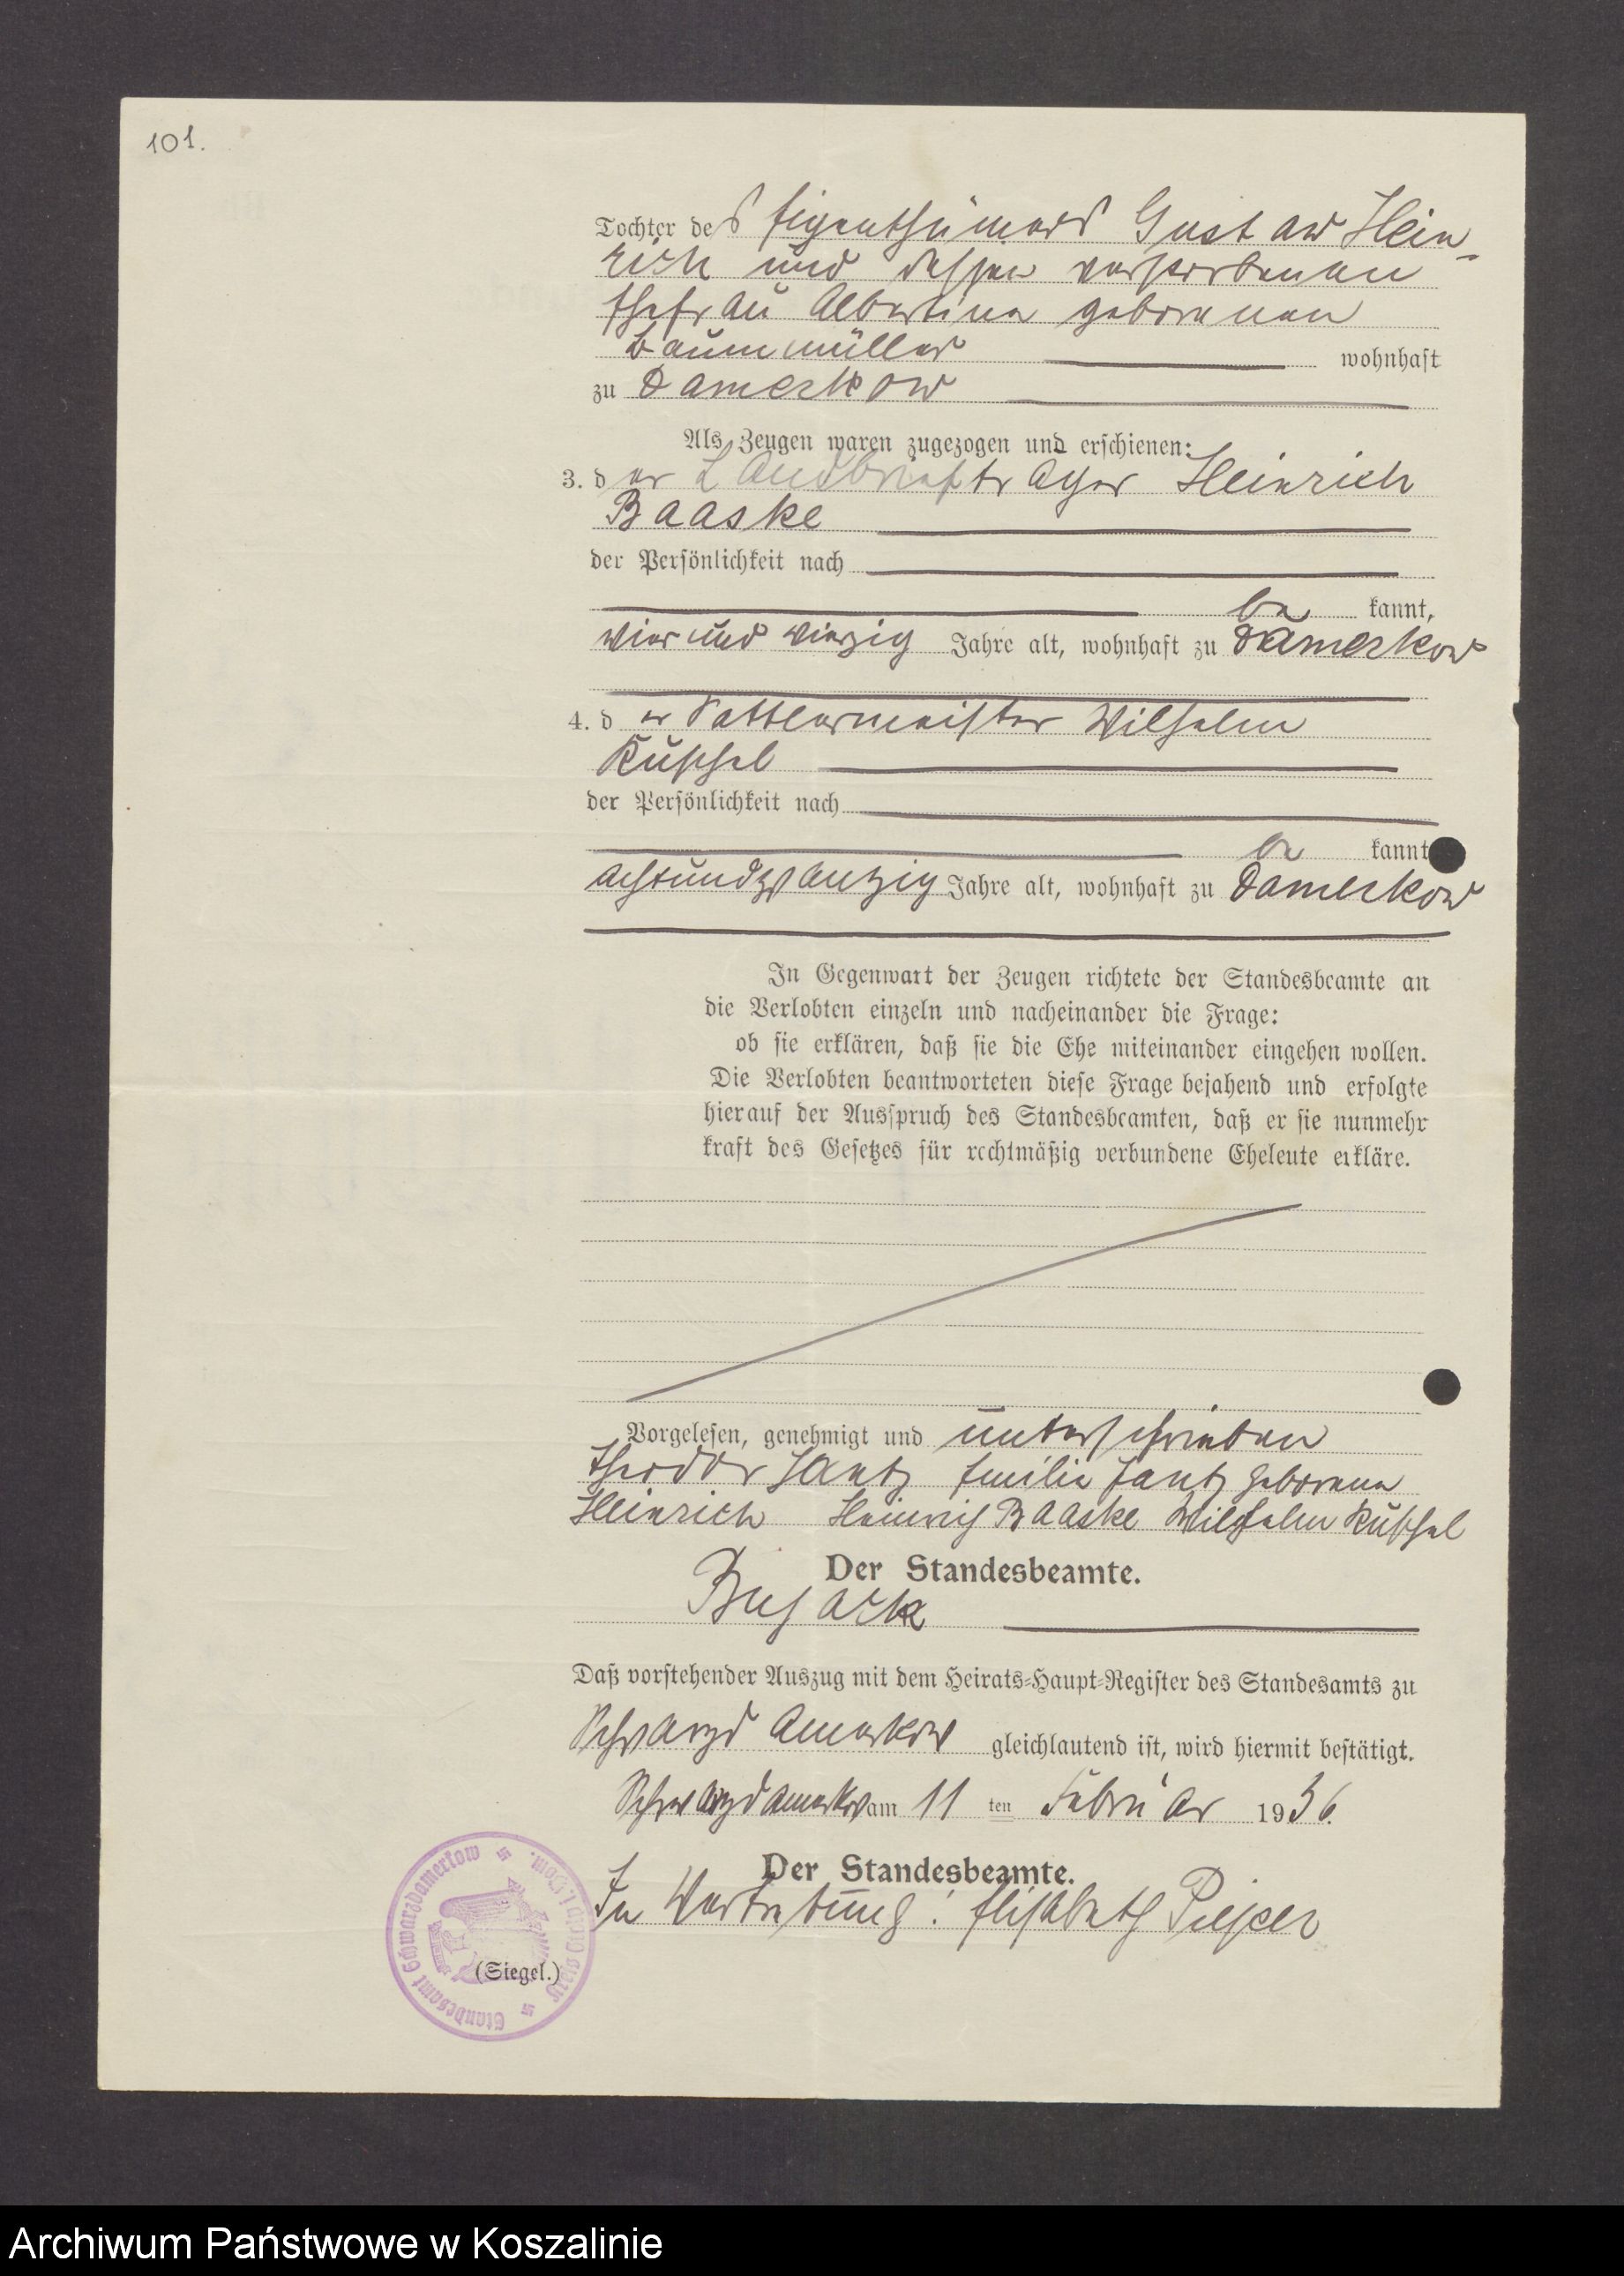 101.
Tochter des Eigenthümers Gustav Hein-
rich und dessen verstorbenen
Ehefrau Albertine geborenen
Baummüller wohnhaft
zu Damerkow
Als Zeugen waren zugezogen und erschienen:
3. der Landbriefträger Heinrich
Baaske
der Persönlichkeit nach
be kannt,
vier und vierzig Jahre alt, wohnhaft zu Damerkow
4. der Sattlermeister Wilhelm
der Persönlichkeit nach
be kannt
achtundzwanzig Jahre alt, wohnhaft zu Damerkow
In Gegenwart der Zeugen richtete der Standesbeamte an
die Verlobten einzeln und nacheinander die Frage:
ob sie erklären, daß sie die Ehe miteinander eingehen wollen.
Die Verlobten beantworteten diese Frage bejahend und erfolgte
hierauf der Ausspruch des Standesbeamten, daß er sie nunmehr
kraft des Gesetzes für rechtmäßig verbundene Eheleute erkläre.
Vorgelesen, genehmigt und unterschrieben
Theodor Jantz Emilie Jantz geborene
Heinrich Heinrich Baaske Wilhelm
Der Standesbeamte.
Daß vorstehender Auszug mit dem Heirats-Haupt-Register des Standesamts zu
Schwarzdamerkow gleichlautend ist, wird hiermit bestätigt.
Schwarzdamerkow am 11 ten Februar 1936.
Der Standesbeamte.
In Vertretung: Elisabeth Pieper
Standesamt Schwarzdamerkow
(Siegel.)
Archiwum Państwowe w Koszalinie